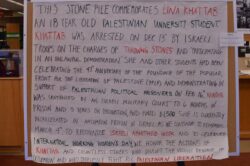 THIS STONE PILE COMMEMORATES LINA KHATTAB
AN 18 YEAR OLD PALESTINIAN UNIVERSITY STUDENT
KHATTAB WAS ARRESTED ON DEC 13 BY ISRAELI
TROOPS ON THE CHARGES OF THROWING STONES AND PARTICIPATING
IN AN UNLAWFUL DEMONSTRATION. SHE AND OTHER STUDENTS HAD BEEN
CELEBRATING THE 47 ANNIVERSARY OF THE FOUNDING OF THE POPULAR
FRONT FOR THE LIBERATION OF PALESTINE (PFLP) AND DEMONSTRATING IN
SUPPORT OF PALESTINIAN POLITICAL PRISONERS ON FEB 16 KHATTAB
WAS SENTENCED BY AN ISRAELI MILITARY COURT TO 6 MONTHS IN
PRISON AND 3 YEARS IN PROBATION, AND FINED $1500 SHE IS CURRENTLY
INCARCERATED IN PRISON IN ISRAEL
MARCH 8 TO RECOGNIZE ISRAELI APARTHEID WEEK AND TO CELEBRATE
INTERNATIONAL WORKING WOMEN'S DAY WE HONOR THE
KHATTAB AND COUNTLESS OTHERS
WOMEN AND PALESTINIAN LIBERATION